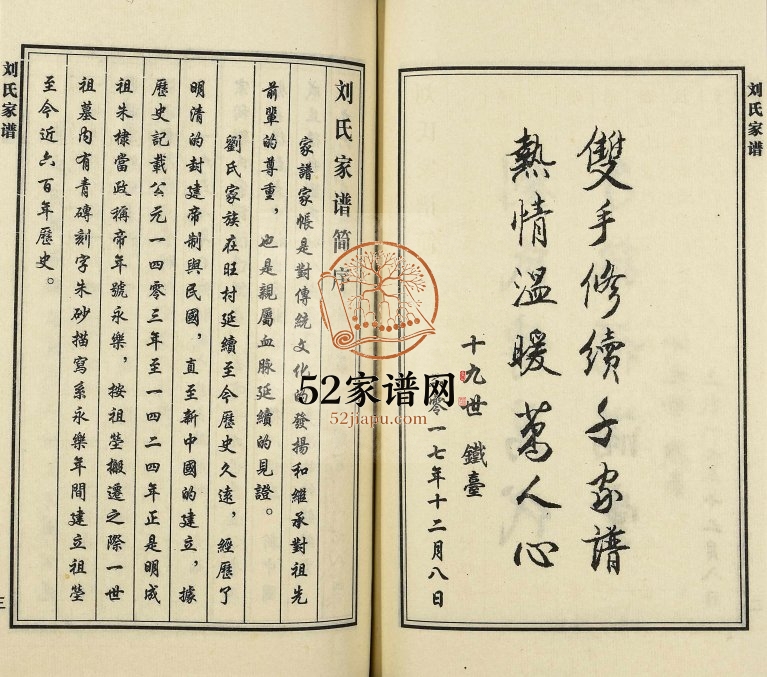 刘氏家谱
雙手修續千家譜
熱情溫暖萬人心
十九世 鐵臺
零一七年十二月八日
刘氏家谱简序
家譜家帳是對傳統文化的發揚和繼承對祖先
前輩的尊重，也是親屬血脉延續的見證。
劉氏家族在旺村延續至今歷史久遠，經歷了
明清的封建帝制與民國，直至新中國的建立，據
歷史記載公元一四零三年至一四二四年正是明成
祖朱棣當政稱帝年號永樂，按祖塋搬遷之際一世
祖墓內有青磚刻字朱砂描寫系永樂年間建立祖塋
至今近六百年歷史。
刘氏家谱
三
52家谱网
52jiapu.com